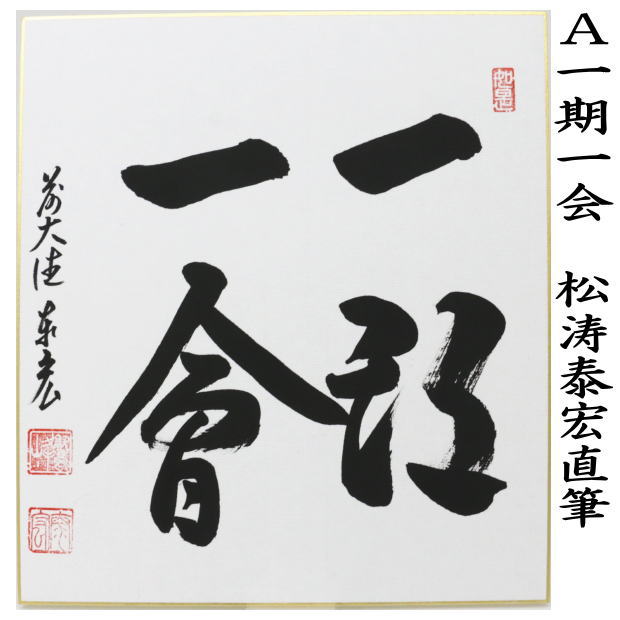 A一期一会　松涛泰宏直筆
一期
一會
前大徳 泰宏
如是